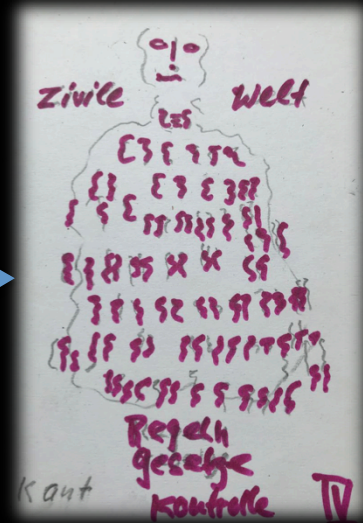 Zivile Welt
Regeln
Gesetze
Kontrolle
Kant
IV